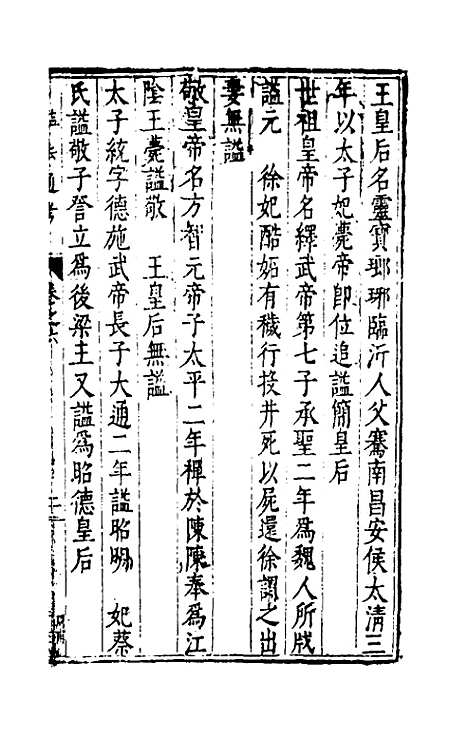 王皇后名靈寶瑯琊臨沂人父騫南昌安侯太清三
年以太子妃薨帝即位追謚簡皇后
世祖皇帝名繹武帝第七子承聖二年為魏人所戕
謚元　徐妃酷妬有穢行投井死以屍還徐謂之出
妻無謚
敬皇帝名方智元帝子太平二年禪於陳陳奉為江
陰王薨謚敬　王皇后無謚
太子統字德施武帝長子大通二年謚昭明　妃蔡
氏謚敬子詧立為後梁主又謚為昭德皇后
謚法通考　卷之六